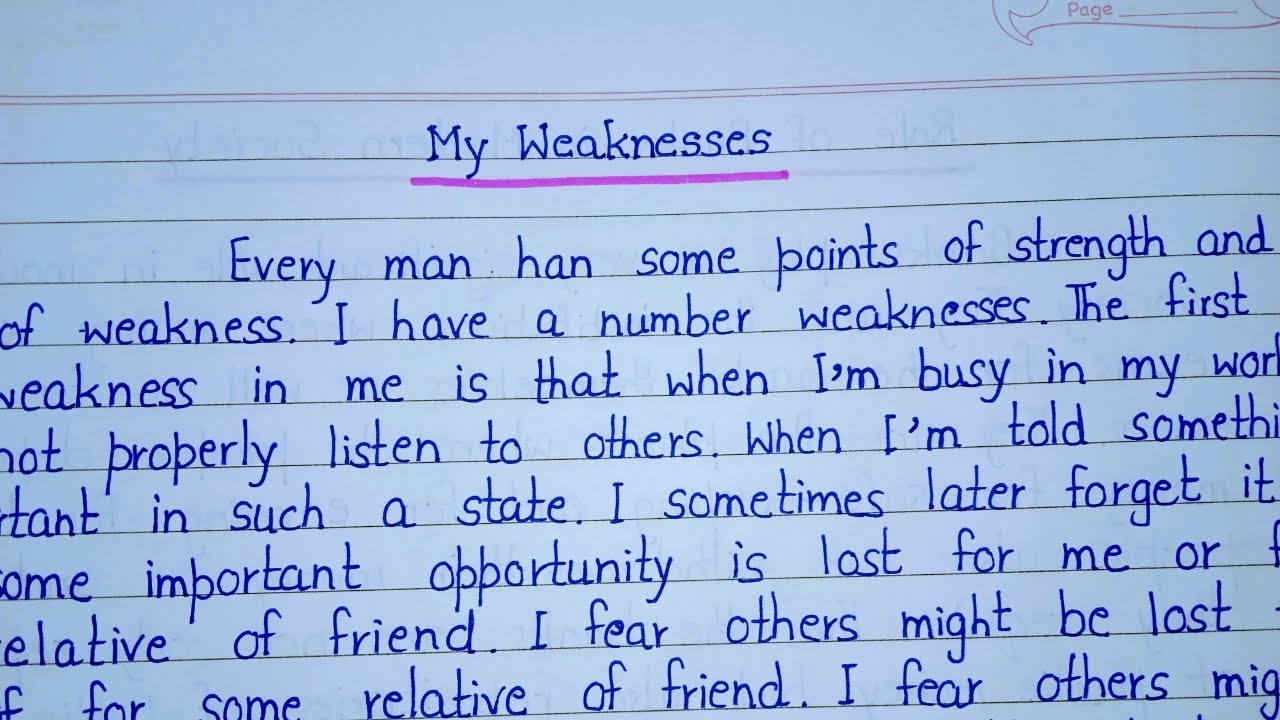 Page
My Weaknesses
Every man han some points of strength and
of weakness. I have a number weaknesses. The first
weakness in me is that when I'm busy in my work
not properly listen to others. When I'm told somethi
rtant in such a state. I sometimes later forget it
some important opportunity is lost for me or
relative of friend. I fear others might be lost
for some relative of friend. I fear others mig